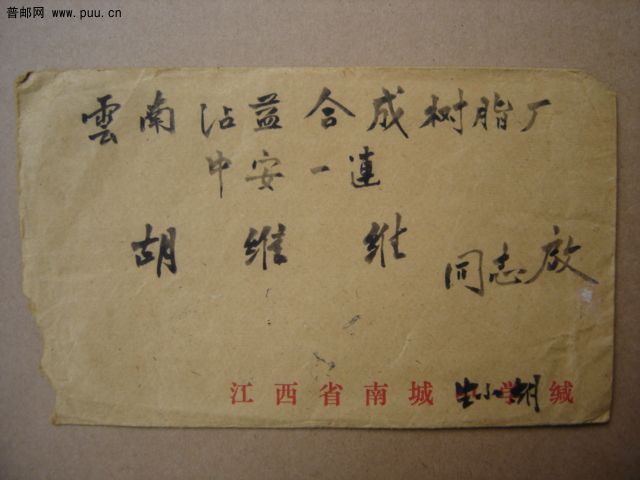 普邮网 www.puu.cn
雲南沾益合成树脂厂
中安一連
胡维维同志啟
江西省南城 小学胡缄